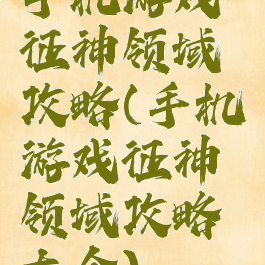 手机游戏
征神领域
攻略(手机
游戏征神
领域攻略
大全)